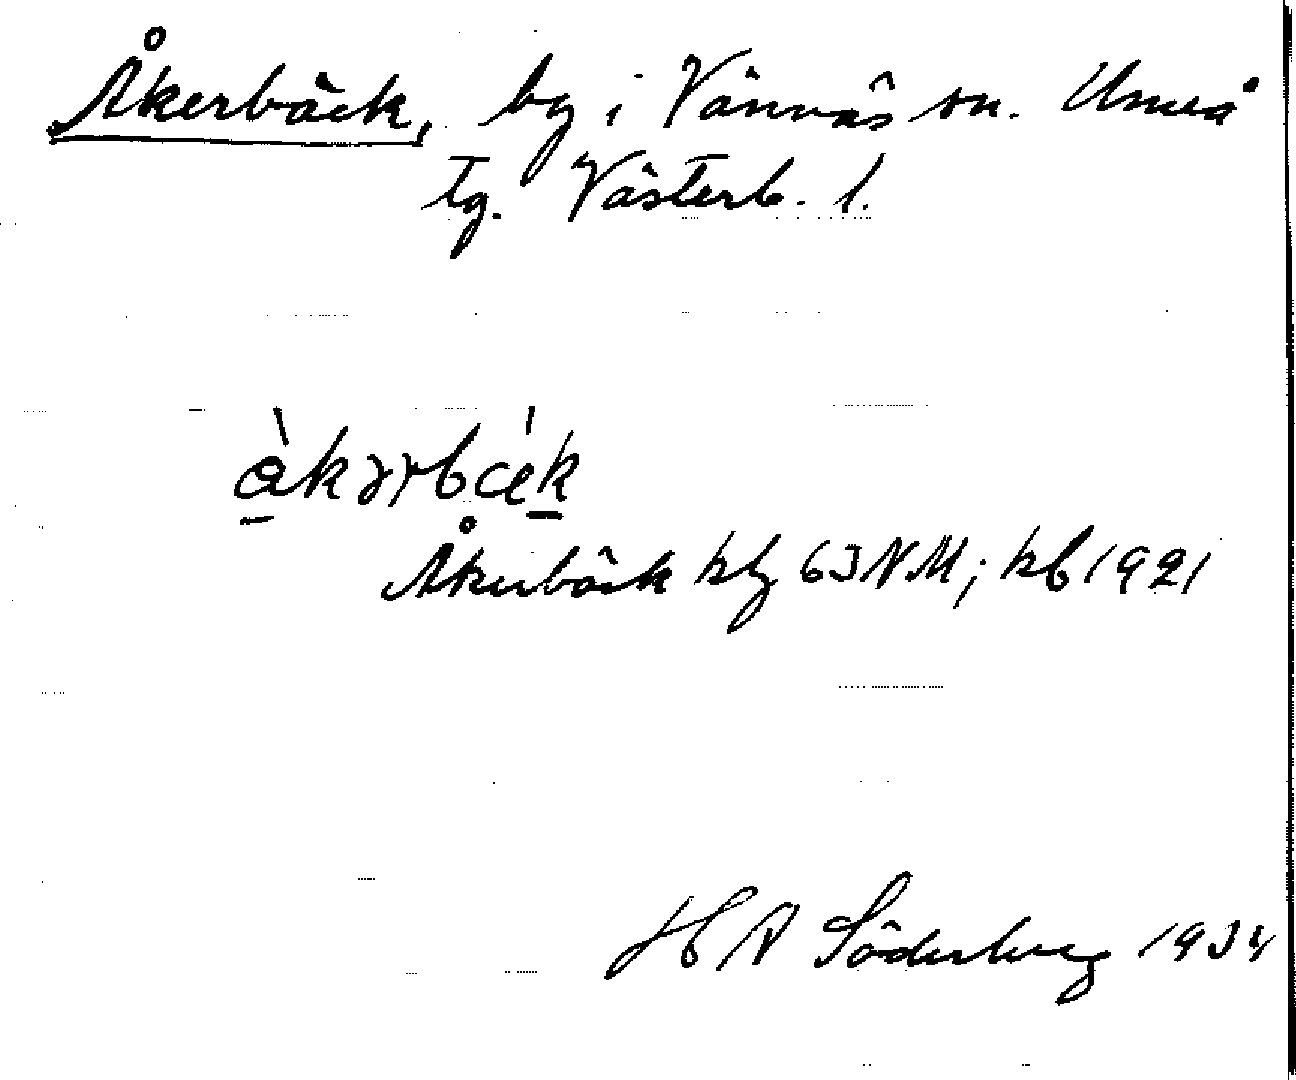 Åkerbäck, by i Vännäs sn. Umeå
tg. Västerb. l.
àkərbæ̀k
Åkerbäck kbl 63 NM; kb 1921
H Söderberg 1934